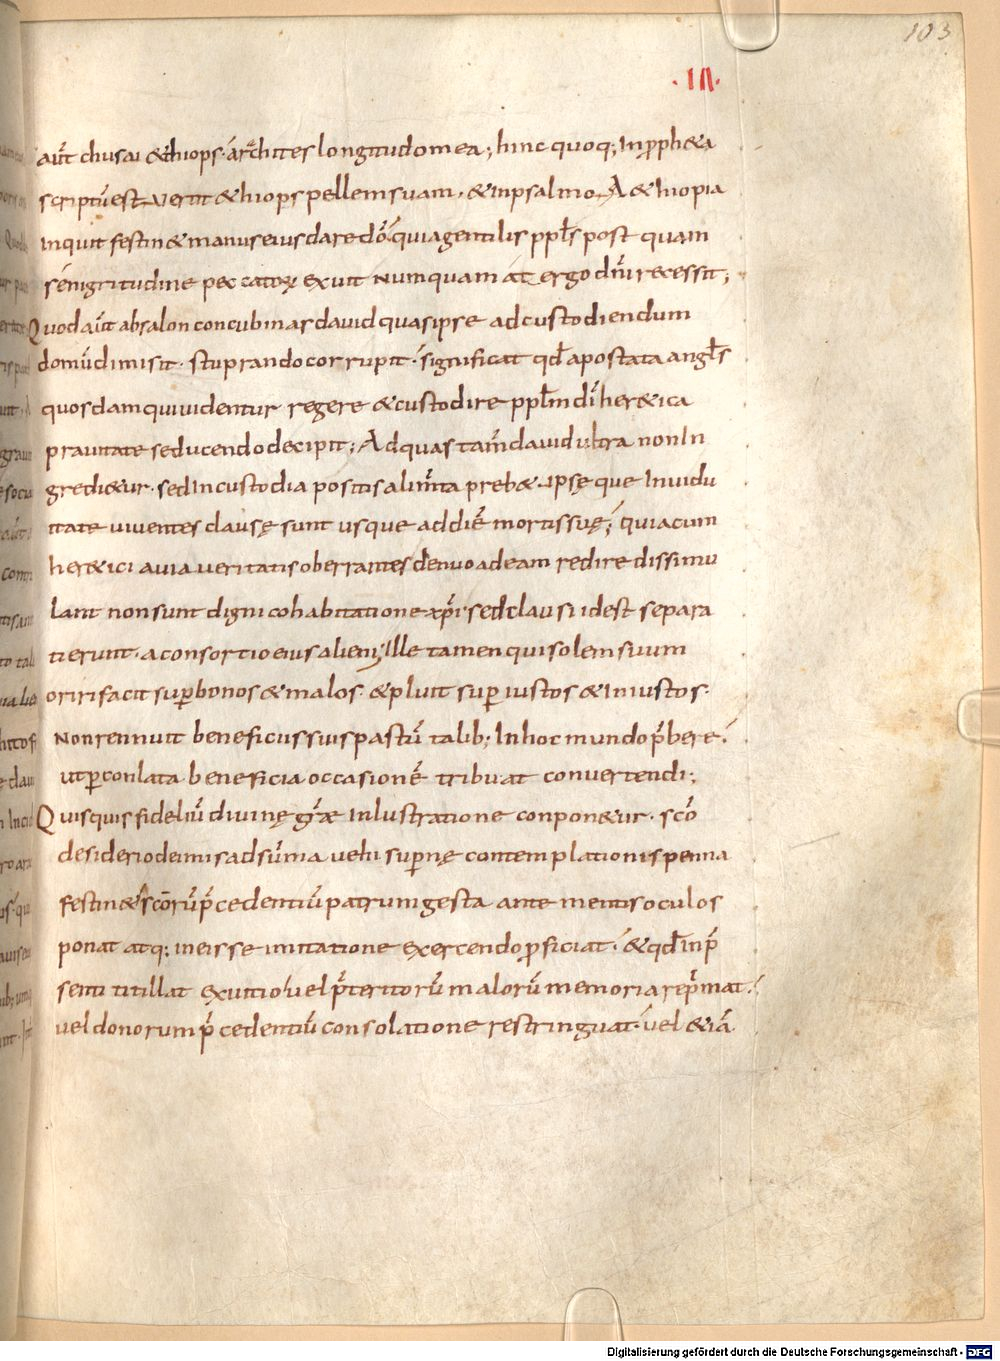 103
·III·
aut̄ chusai &thiops· arachites longitudo mea; hinc quoq; In pph&a
scriptū est vertit &hiops pellem suam· & in psalmo A &hiopia
inquit festin& manus eius dare dō· quia gentilis pp̄ls post quam
se nigritudine peccatorꝝ exuit numquam at ergo dn̄i recessit;
Quod aut̄ absalon concubinas david quas ipse ad custodiendum
domū dimisit· stuprando corrupit· significat qd̄ apostata angl̄s
quosdam qui videntur regere & custodire pp̄lm dī her&ica
pravitate seducendo decipit; Ad quas tam̄ david ultra non In
gredi&ur· sed In custodia positis alim̄ta preb&· Ipsę que In vidu
itate viventes clausę sunt usque ad diē mortis suę; quia cum
her&ici a via veritatis oberrantes denuo ad eam redire dissimu
lant non sunt digni cohabitatione xp̄i sed clausi id est separa
ti erunt· a consortio eius alieni; Ille tamen qui solem suum
oriri facit sup bonos & malos· & pluit sup iustos & iniustos·
Non rennuit beneficus suis pastū talib; In hoc mundo p̄bere·
ut p conlata beneficia occasionē tribuat convertendi;
Quisquis fideliū divinę gr̄ae inlustratione conpon&ur· sc̄o
desiderio de imis ad sūma velu supnę contemplationis penna
festin& sc̄orū p̄cedentiū patrum gesta ante mentis oculos
ponat atq; in eis se imitatione exercendo pficiat· & qd̄ In p̄
senti titillat ex vitio vel p̄teritorū malorū memoria rep̄mat·
vel donorum p̄cedentiū consolatione restringuat· vel &iā
Digitalisierung gefördert durch die Deutsche Forschungsgemeinschaft - DFG